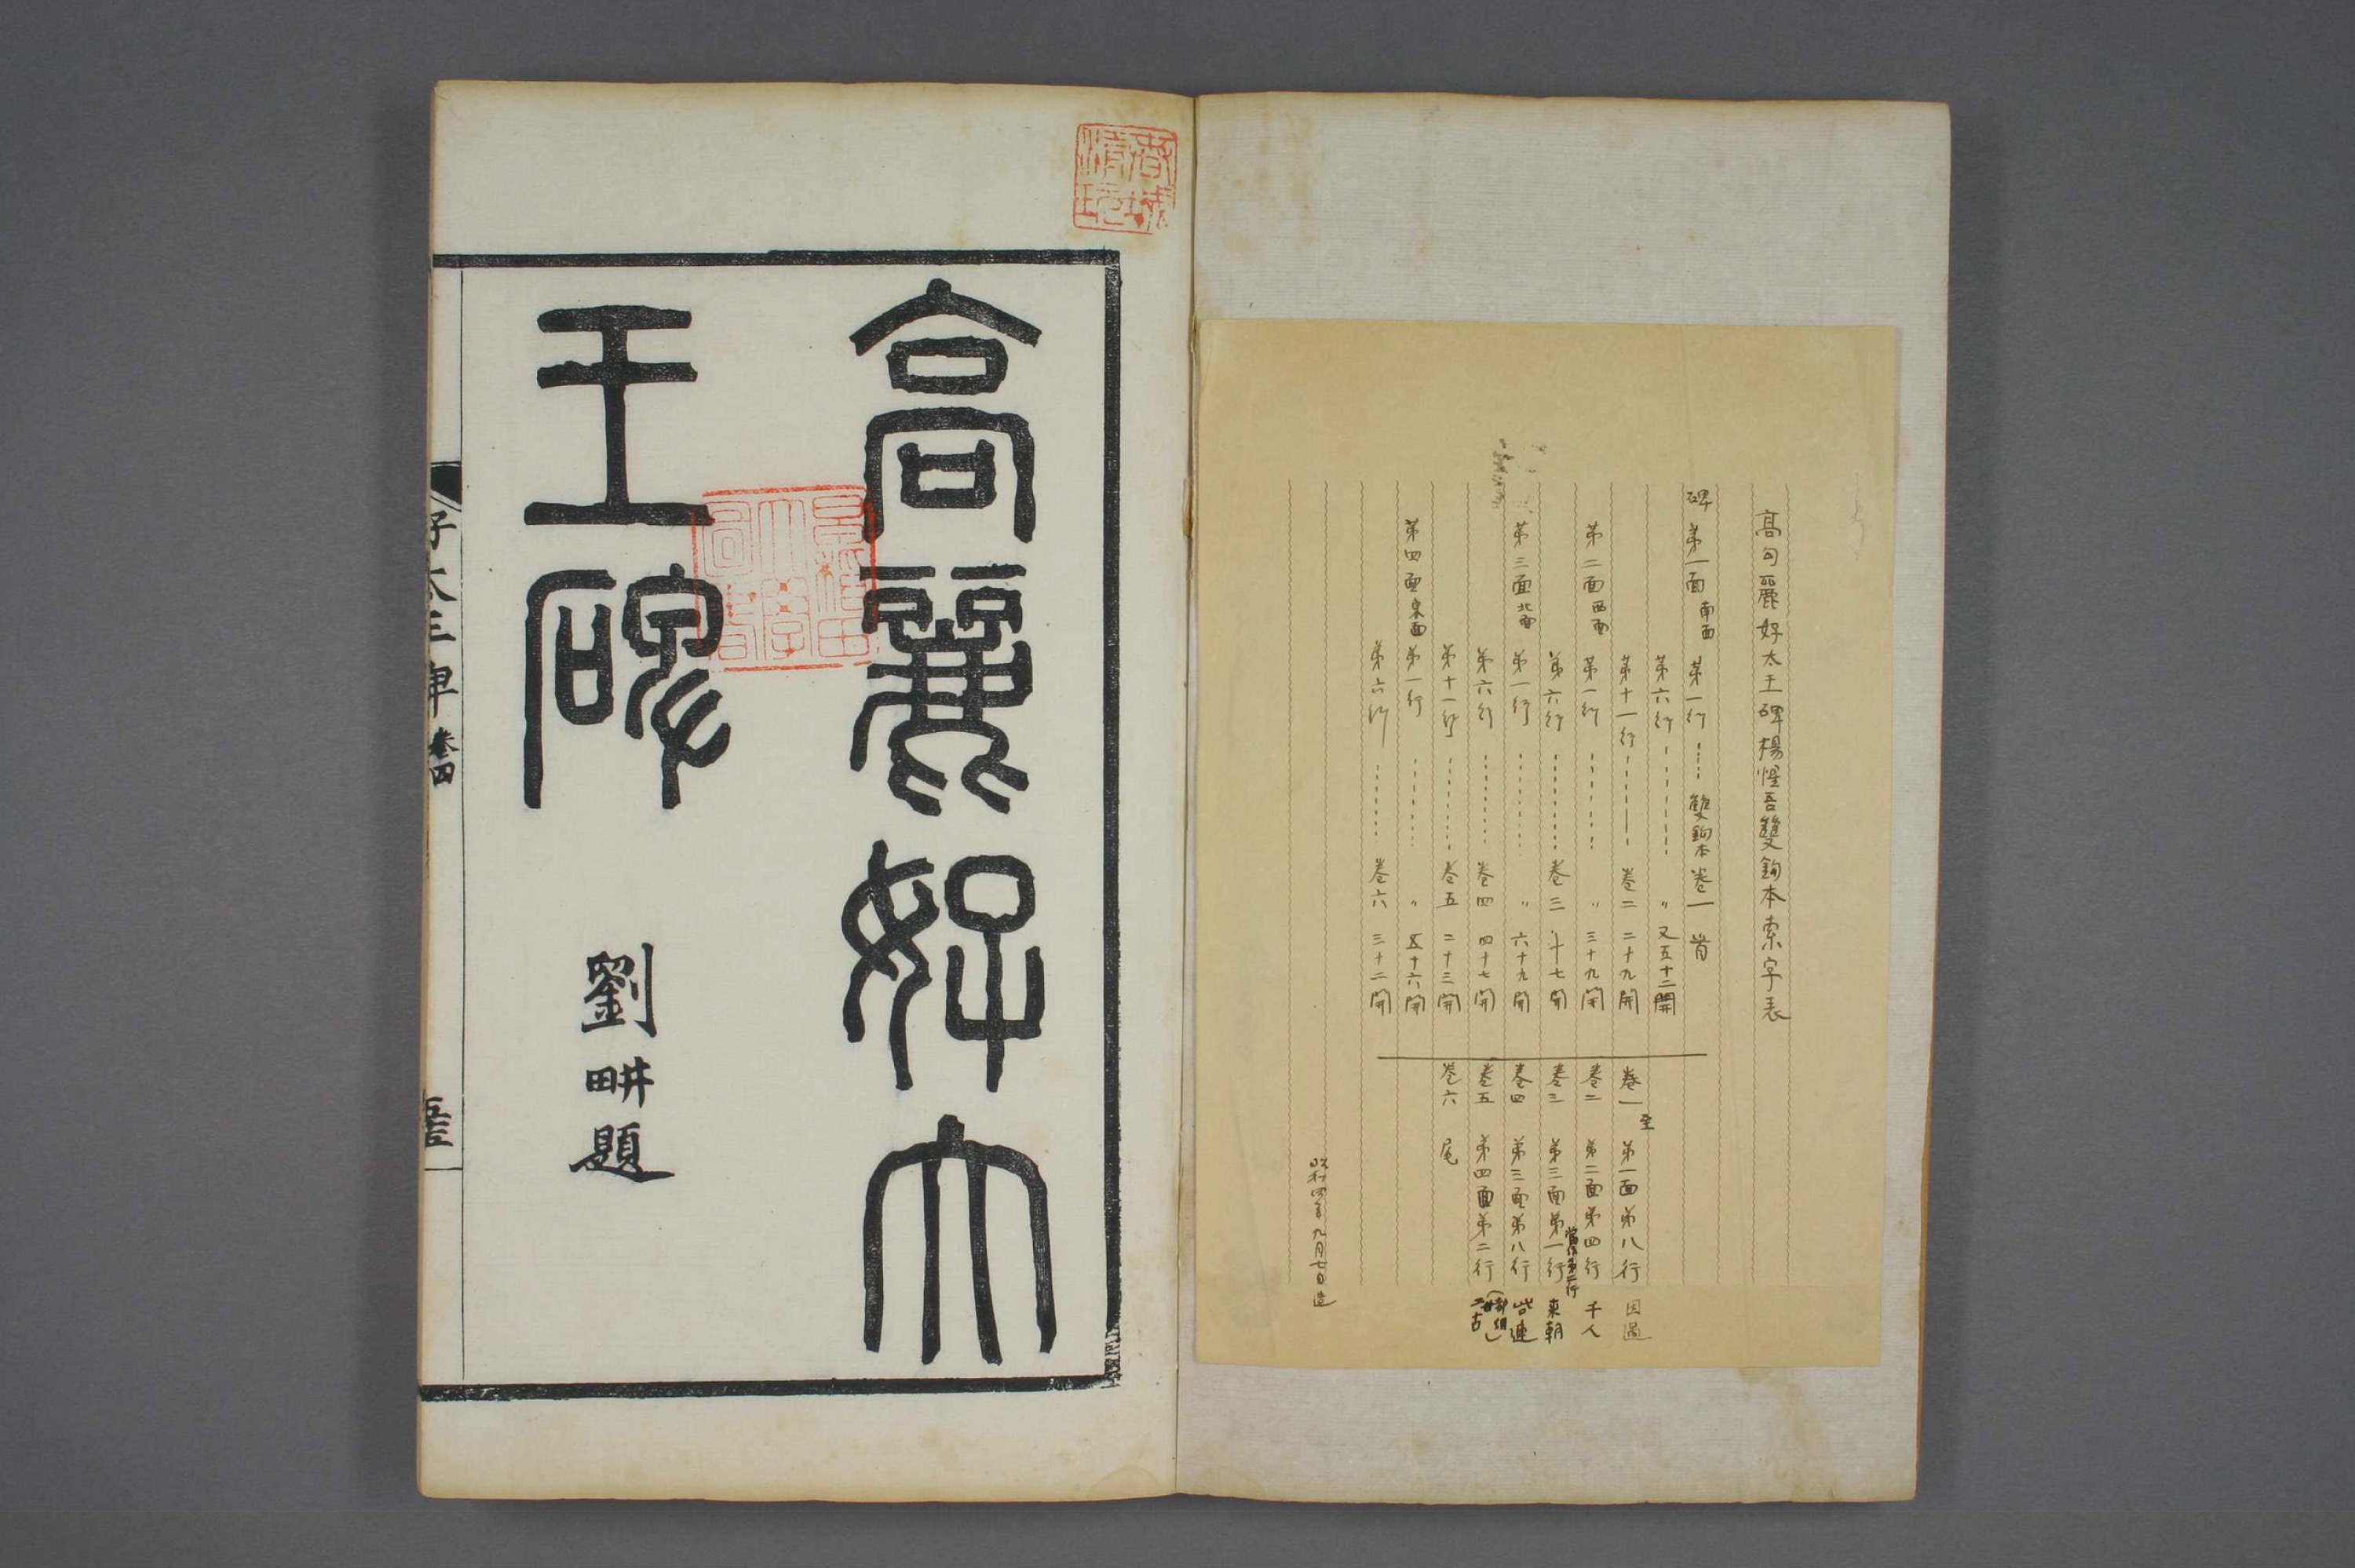 高句麗好太王碑楊惺吾雙鉤本索字表
碑 第一面 南面 第一行 雙鉤本 卷一 首
第六行 〃 又五十二開
第十一行 卷二 二十九開
第二面 西面 第一行 〃 三十九開
第六行 卷三 十七開
第三面 北面 第一行 〃 六十九開
第六行 卷四 四十七開
第十一行 卷五 二十三開
第四面 東面 第一行 〃 五十六開
第六行 卷六 三十二開
卷一 至 第一面第八行 因過
卷二 第二面第四行 千人
卷三 第三面第一行 來朝
卷四 第三面第八行 岑連
卷五 第四面第二行 古
卷六 尾
昭和四年九月七日造
高麗好大
王碑
劉畊題
好太王碑 卷四